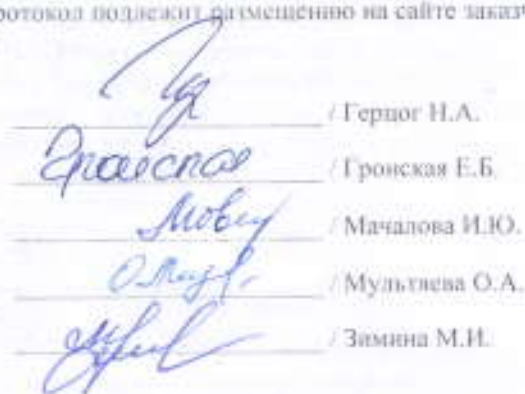 ротокол подлежит размещению на сайте заказч
/ Герцог Н.А.
/ Гронская Е.Б.
/ Мачалова И.Ю.
/ Мультяева О.А.
/ Зимина М.И.